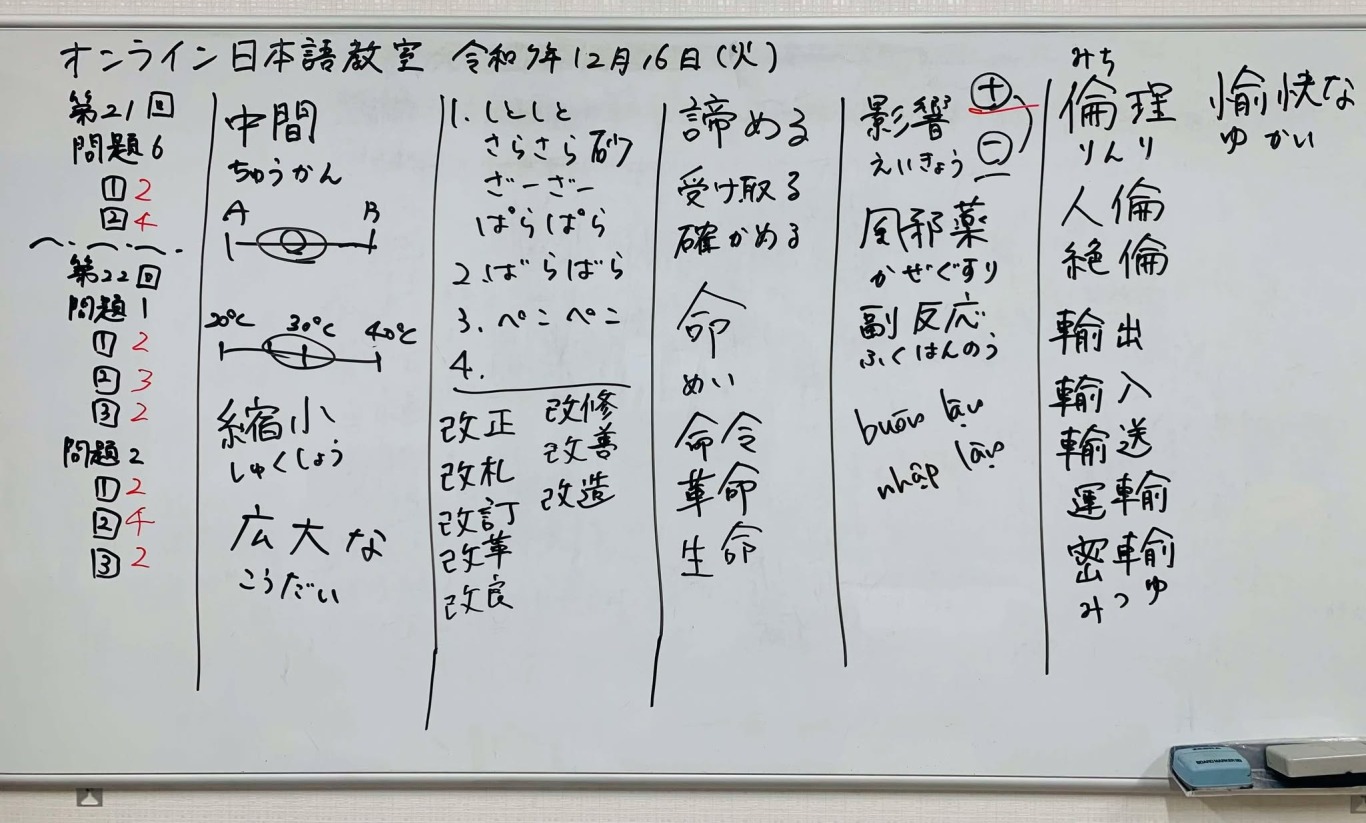 オンライン日本語教室 令和7年12月16日(火)
第21回
問題6
1 2
2 4
第22回
問題1
1 2
2 3
3 2
問題2
1 2
2 4
3 2
中間
ちゅうかん
A B
20℃ 30℃ 40℃
縮小
しゅくしょう
広大な
こうだい
1. しとしと
さらさら 砂
ざーざー
ぱらぱら
2. ばらばら
3. ぺこぺこ
4.
改正 改修
改札 改善
改訂 改造
改革
改良
諦める
受け取る
確かめる
命
めい
命令
革命
生命
影響 +
えいきょう -
風邪薬
かぜぐすり
副反応
ふくはんのう
buôn lậu
nhập lậu
みち
倫理 愉快な
りんり ゆかい
人倫
絶倫
輸出
輸入
輸送
運輸
密輸
みつゆ